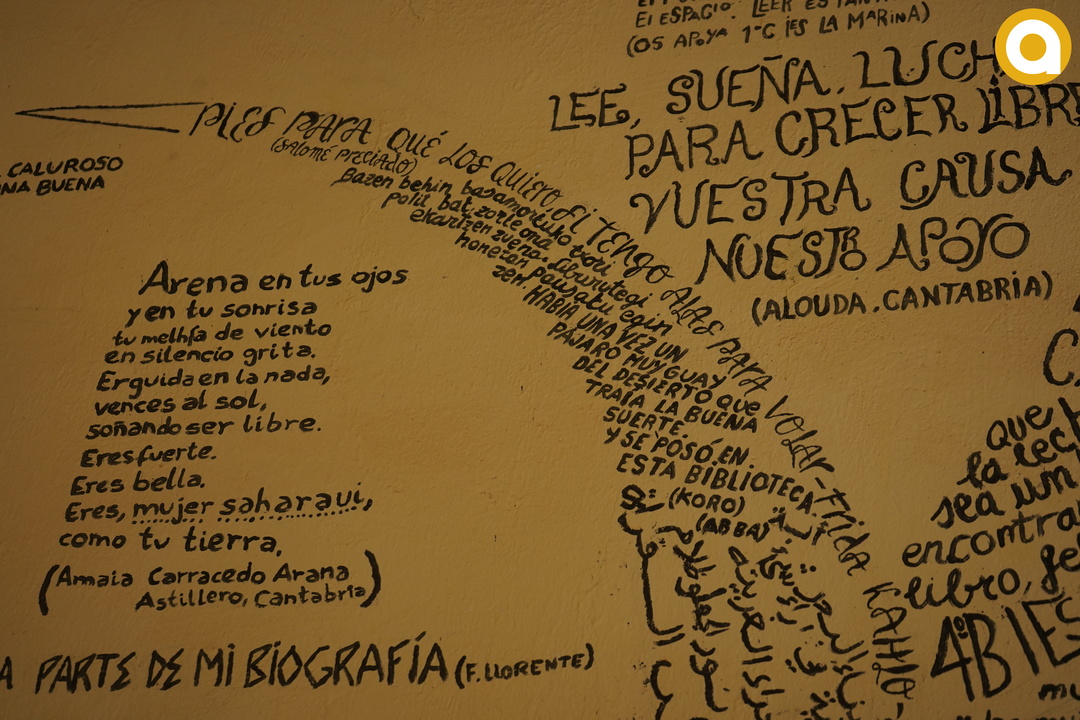 El ESPACIO. LEER ES
(OS APOYA 1ºC IES LA MARINA)
LEE, SUEÑA, LUCH
PARA CRECER LIBRE
VUESTRA CAUSA
NUESTRO APOYO
(ALOUDA.CANTABRIA)
CALUROSO
NA BUENA
PIES PARA QUÉ LOS QUIERO, SI TENGO ALAS PARA VOLAR-Frida KAHLO
(SALOMÉ PRECIADO)
Bazen behin basamortuko txori
polit bat, zorte ona
ekartzen zuena. Liburutegi
honetan pausatu egin
zen. HABÍA UNA VEZ UN
PÁJARO MUY GUAY
DEL DESIERTO QUE
TRAÍA LA BUENA
SUERTE.
Y SE POSÓ EN
ESTA BIBLIOTECA
(KORO)
(ABBA)
Arena en tus ojos
y en tu sonrisa
tu melhfa de viento
en silencio grita.
Erguida en la nada,
vences al sol,
soñando ser libre.
Eres fuerte.
Eres bella.
Eres, mujer saharaui,
como tu tierra.
(Amaia Carracedo Arana
Astillero, Cantabria)
A PARTE DE MI BIOGRAFÍA (F. LLORENTE)
que
la lec
sea un
encontra
libro, fe
4ºB IES